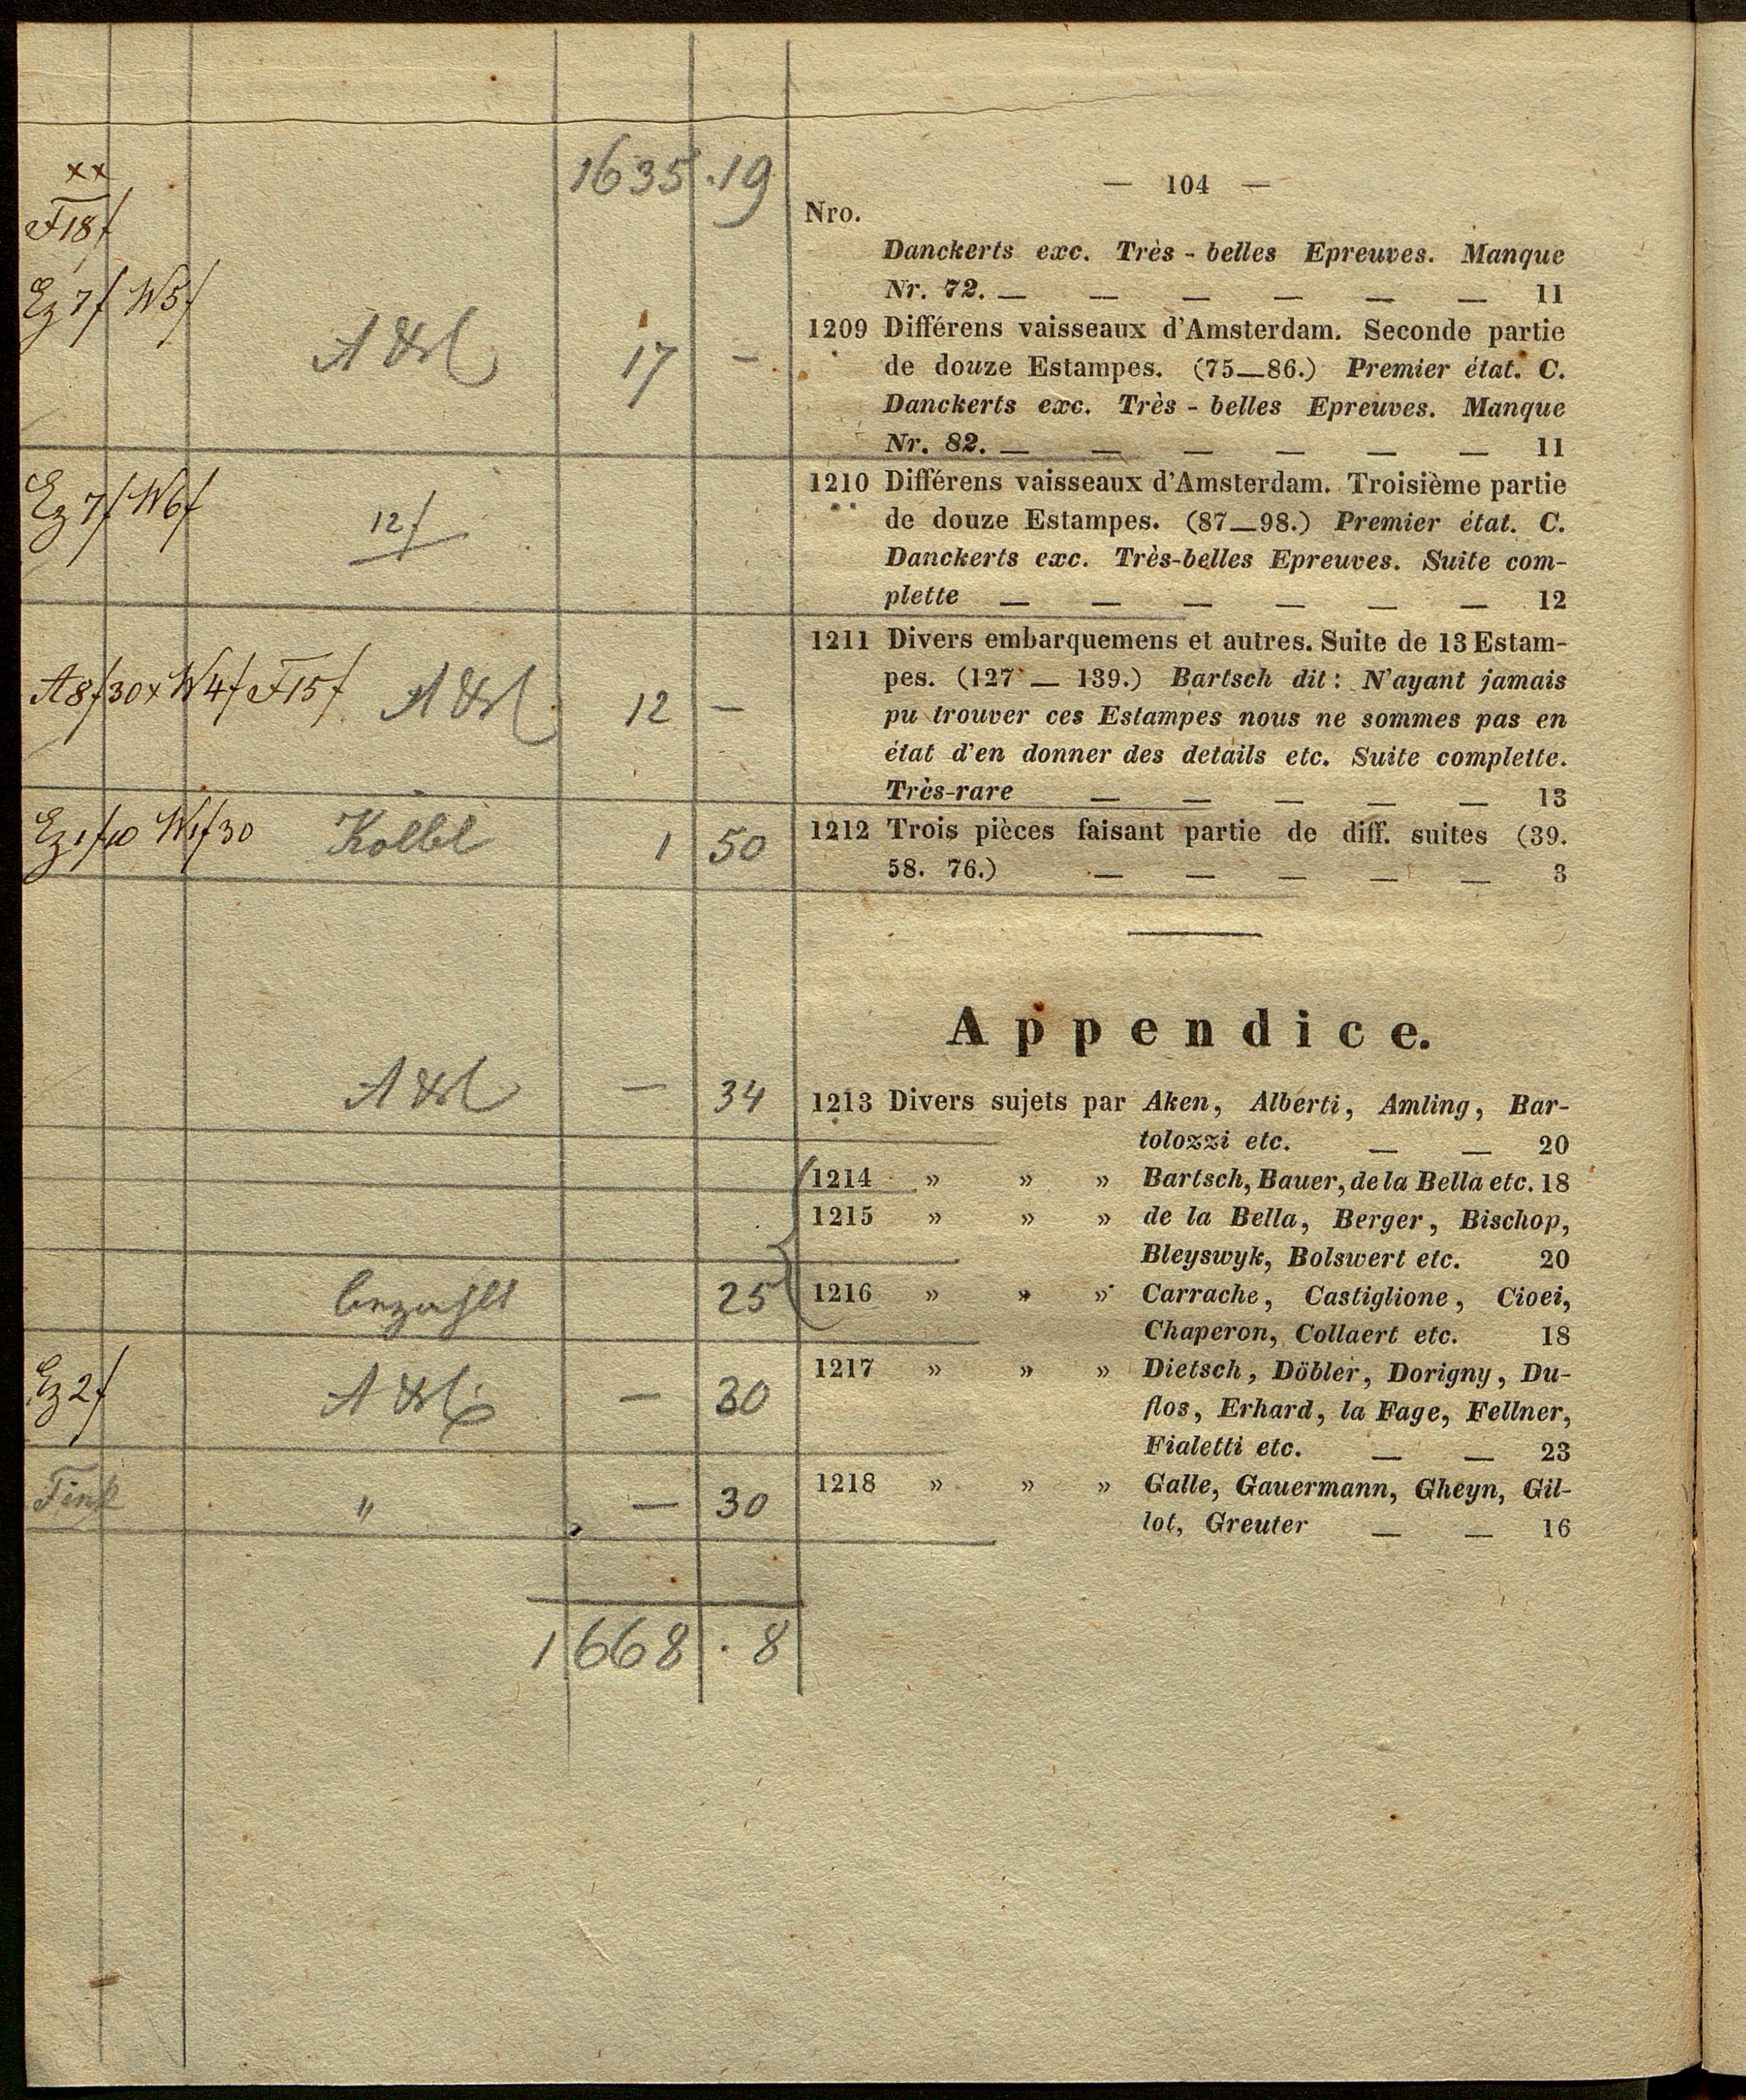 1635 . 19
xx
F18f
— 104 —
Nro.
Danckerts exc. Très - belles Epreuves. Manque
Nr. 72. — — — — — — 11
Ez 7f W5f
17 —
1209 Différens vaisseaux d'Amsterdam. Seconde partie
de douze Estampes. (75—86.) Premier état. C.
Danckerts exc. Très - belles Epreuves. Manque
Nr. 82. — — — — — — 11
Ez 7f W6f
12f
1210 Différens vaisseaux d'Amsterdam. Troisième partie
de douze Estampes. (87—98.) Premier état. C.
Danckerts exc. Très-belles Epreuves. Suite com-
plette — — — — — — 12
A8f30x W4f F15f 12 —
1211 Divers embarquemens et autres. Suite de 13 Estam-
pes. (127 — 139.) Bartsch dit: N'ayant jamais
pu trouver ces Estampes nous ne sommes pas en
état d'en donner des details etc. Suite complette.
Très-rare — — — — — 13
Ez 1f10 W1f30 Kolbl 1 50
1212 Trois pièces faisant partie de diff. suites (39.
58. 76.) — — — — — 3
Appendice.
— 34
1213 Divers sujets par Aken, Alberti, Amling, Bar-
tolozzi etc. — — 20
1214 » » » Bartsch, Bauer, de la Bella etc. 18
1215 » » » de la Bella, Berger, Bischop,
Bleyswyk, Bolswert etc. 20
bezahlt 25
1216 » » » Carrache, Castiglione, Cioei,
Chaperon, Collaert etc. 18
Ez 2f — 30
1217 » » » Dietsch, Döbler, Dorigny, Du-
flos, Erhard, la Fage, Fellner,
Fialetti etc. — — 23
Fink " — 30
1218 » » » Galle, Gauermann, Gheyn, Gil-
lot, Greuter — — 16
1668 . 8